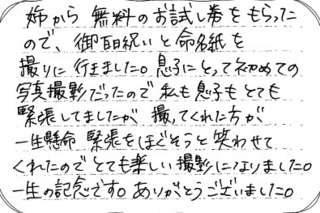 姉から 無料のお試し券をもらった
ので、御百日祝いと命名紙を
撮りに行きました。息子にとって初めての
写真撮影だったので私も息子もとても
緊張してましたが 撮ってくれた方が
一生懸命 緊張をほぐそうと笑わせて
くれたのでとても楽しい撮影になりました。
一生の記念です。ありがとうございました。